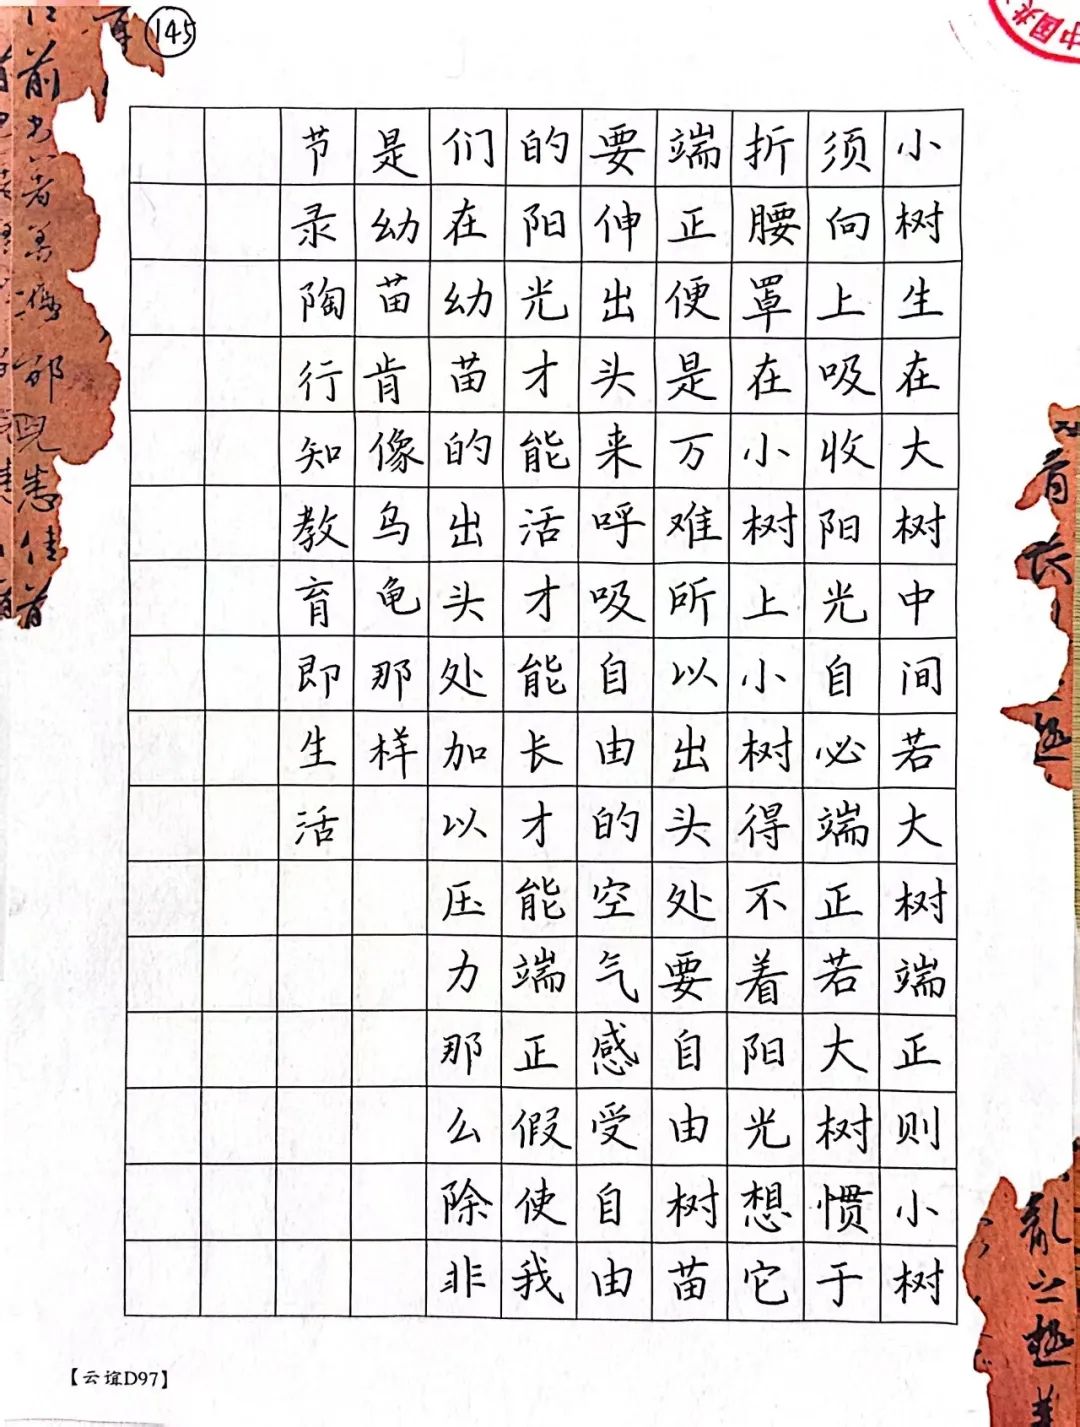 145
小树生在大树中间若大树端正则小树
须向上吸收阳光自必端正若大树惯于
折腰罩在小树上小树得不着阳光想它
端正便是万难所以出头处要自由树苗
要伸出头来呼吸自由的空气感受自由
的阳光才能活才能长才能端正假使我
们在幼苗的出头处加以压力那么除非
是幼苗肯像乌龟那样
节录陶行知教育即生活
【云谊D97】
中国